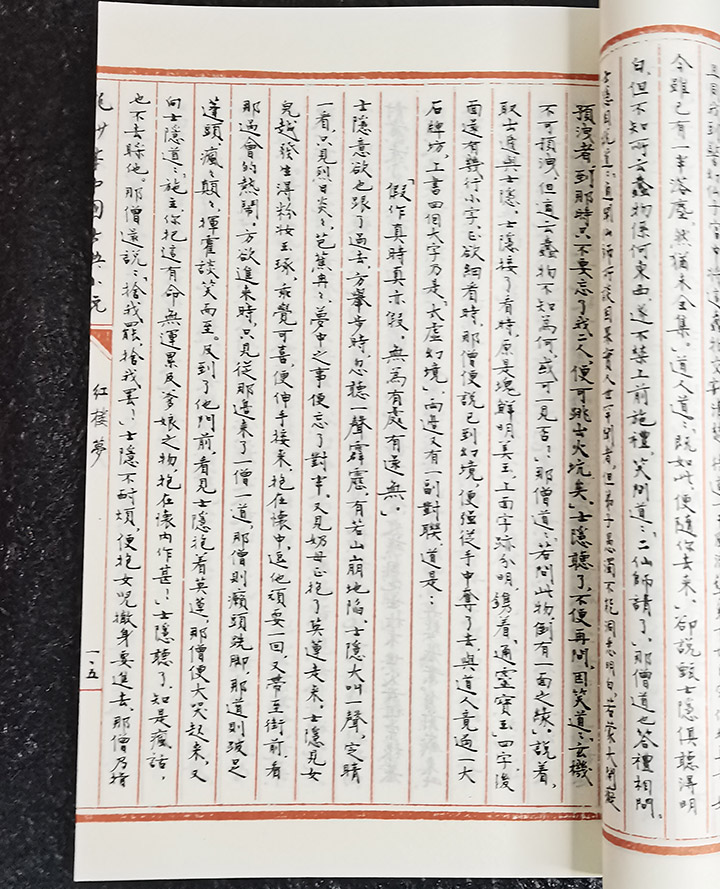 今雖已有一半落塵，然猶未全集。道人道：「既如此，便隨你去來。」卻說甄士隱俱聽得明
白，但不知所云蠢物係何東西，遂不禁上前施禮，笑問道：「二仙師請了。」那僧道也答禮相問。
士隱因說道：「適聞仙師所談因果，實人世罕聞者，但弟子愚濁，不能洞悉明白，若蒙大開癡
預洩者，到那時只不要忘了我二人，便可跳出火坑矣。」士隱聽了，不便再問，因笑道：「玄機
不可預洩，但適云蠢物，不知為何，或可一見否？」那僧道：「若問此物，倒有一面之緣。」說着，
取出遞與士隱。士隱接了看時，原是塊鮮明美玉，上面字跡分明，鐫着「通靈寶玉」四字，後
面還有幾行小字。正欲細看時，那僧便說已到幻境，便強從手中奪了去，與道人竟過一大
石牌坊，上書四個大字，乃是「太虛幻境」，兩邊又有一副對聯，道是：
「假作真時真亦假，無為有處有還無。」
士隱意欲也跟了過去，方舉步時，忽聽一聲霹靂，有若山崩地陷。士隱大叫一聲，定睛
一看，只見烈日炎々，芭蕉冉々，夢中之事便忘了對半。又見奶母正抱了英蓮走來。士隱見女
兒越發生得粉妝玉琢，乖覺可喜，便伸手接來，抱在懷中，逗他頑耍一回，又帶至街前，看
那過會的熱鬧。方欲進來時，只見從那邊來了一僧一道，那僧則癩頭跣脚，那道則跛足
蓬頭，瘋々顛々，揮霍談笑而至。及到了他門前，看見士隱抱着英蓮，那僧便大哭起來，又
向士隱道：「施主，你把這有命無運，累及爹娘之物，抱在懷內作甚！」士隱聽了，知是瘋話，
也不去睬他。那僧還說：「捨我罷，捨我罷！」士隱不耐煩，便抱女兒撤身要進去，那僧乃指
紅樓夢
一·五